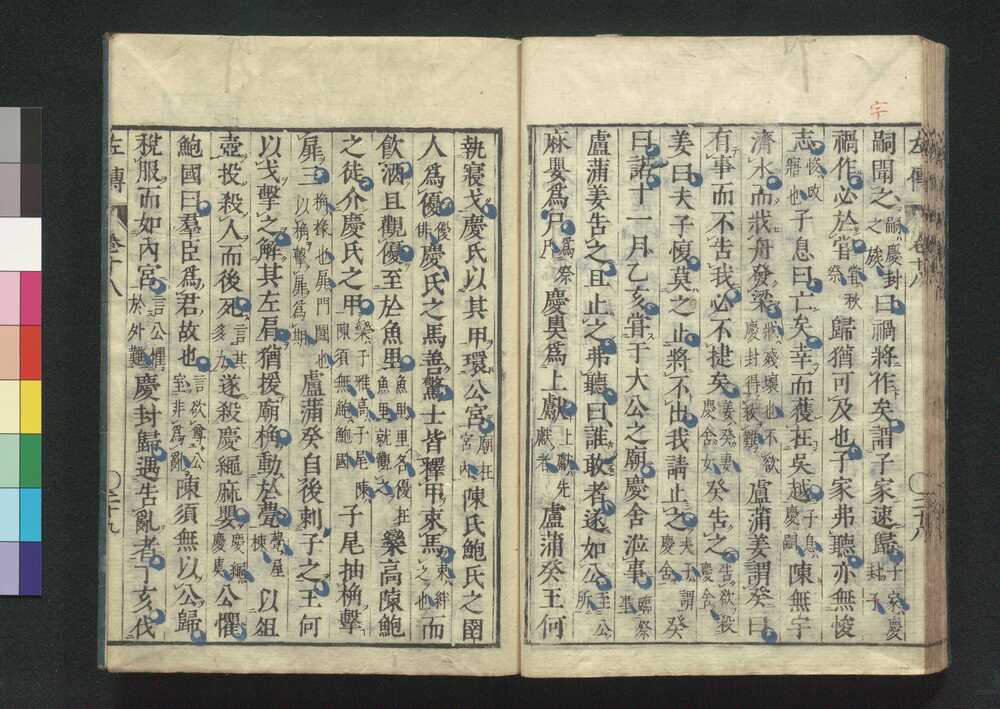 宇
嗣聞之嗣慶封之族曰禍將作矣謂子家速歸子家慶封字
禍作必於嘗嘗秋祭歸猶可及也子家弗聽亦無悛
志悛改寤也子息曰亡矣幸而獲在吳越子息慶嗣陳無宇
濟水而戕舟發梁戕殘壞也不欲慶封得救難盧蒲姜謂癸曰
有事而不告我必不捷矣姜癸妻慶舍女癸告之告欲殺慶舍
姜曰夫子愎莫之止將不出我請止之夫子謂慶舍癸
曰諾十一月乙亥嘗于大公之廟慶舍涖事臨祭事
盧蒲姜告之且止之弗聽曰誰敢者遂如公至公所
麻嬰為尸為祭尸慶奊為上獻上獻先獻者盧蒲癸王何
左傳 卷十八 三十八
執寢戈慶氏以其甲環公宮廟在宮內陳氏鮑氏之圉
人為優優俳慶氏之馬善驚士皆釋甲束馬束絆之也而
飲酒且觀優至於魚里魚里里名優在魚里就觀之欒高陳鮑
之徒介慶氏之甲欒子雅高子尾陳陳須無鮑鮑國子尾抽桷擊
扉三桷椽也扉門闔也以桷擊扉為期盧蒲癸自後刺子之王何
以戈擊之解其左肩猶援廟桷動於甍甍屋棟以俎
壺投殺人而後死言其多力遂殺慶繩麻嬰慶繩慶奊公懼
鮑國曰羣臣為君故也言欲尊公室非為亂陳須無以公歸
稅服而如內宮言公懼於外難慶封歸遇告亂者丁亥伐
左傳 卷十八 三十九